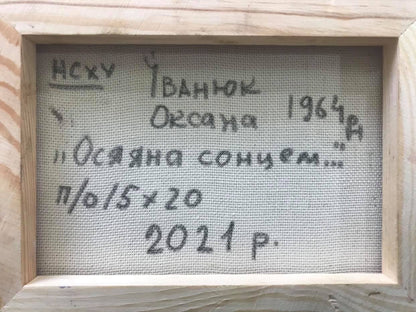 НСХУ
Іванюк
Оксана 1964 рн
„Осяяна сонцем..."
п/о 15 х 20
2021 р.